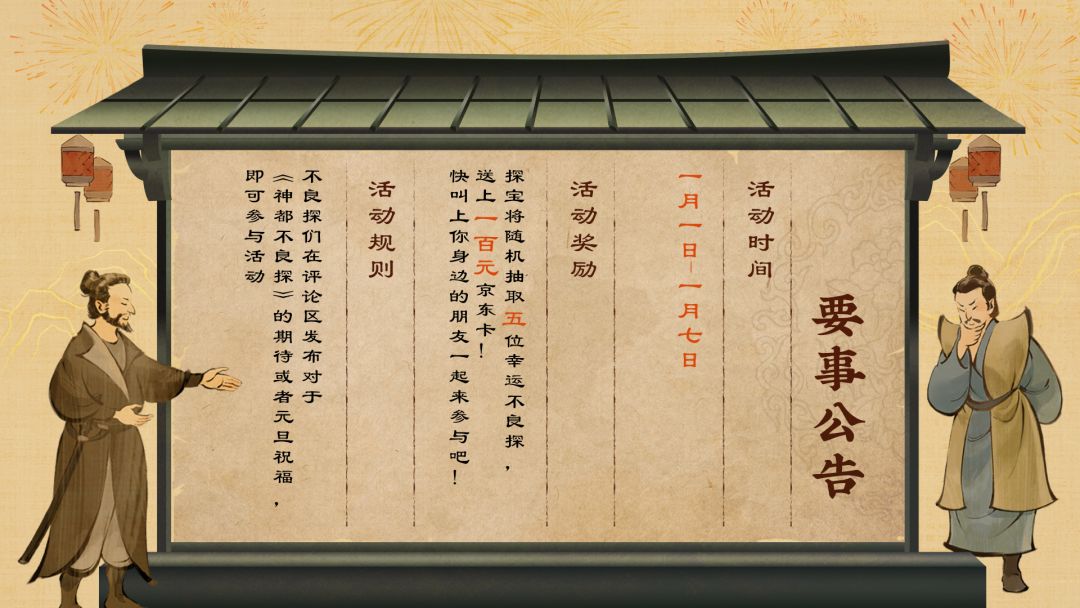 要事公告
活动时间
一月一日-一月七日
活动奖励
探宝将随机抽取五位幸运不良探，
送上一百元京东卡！
快叫上你身边的朋友一起来参与吧！
活动规则
不良探们在评论区发布对于
《神都不良探》的期待或者元旦祝福，
即可参与活动